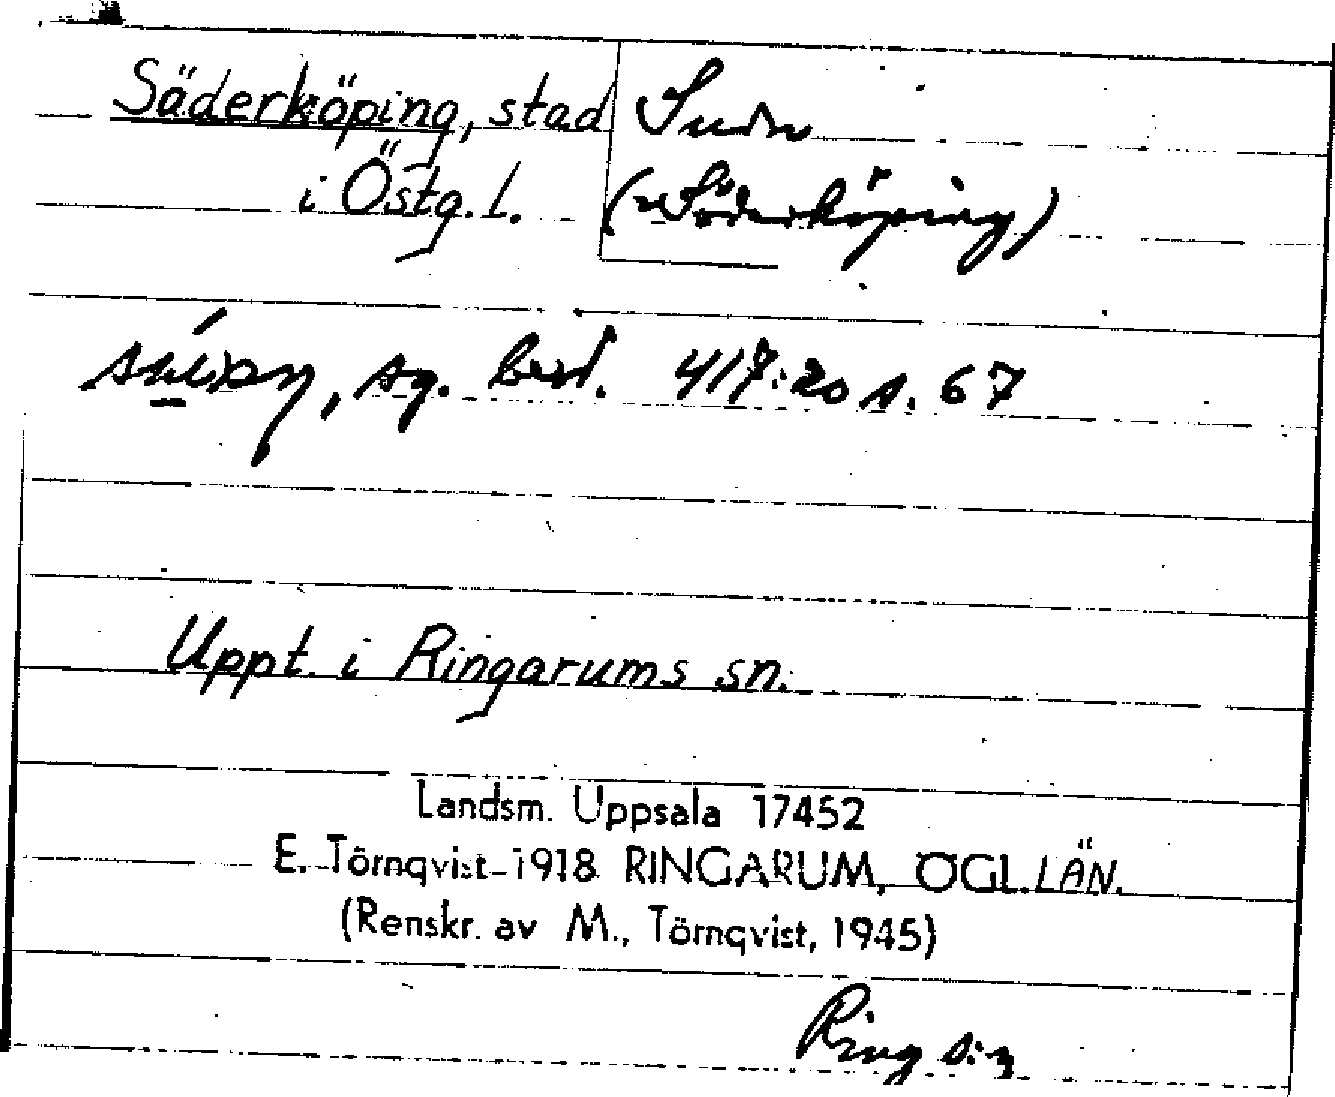 Söderköping, stad
i Östg. l.
Sudn
(Söderköping)
sg. best. 417:20 s. 67
Uppt. i Ringarums sn.
Landsm. Uppsala 17452
E. Törnqvist 1918 RINGARUM, ÖGL. LÄN.
(Renskr. av M., Törnqvist, 1945)
Ring